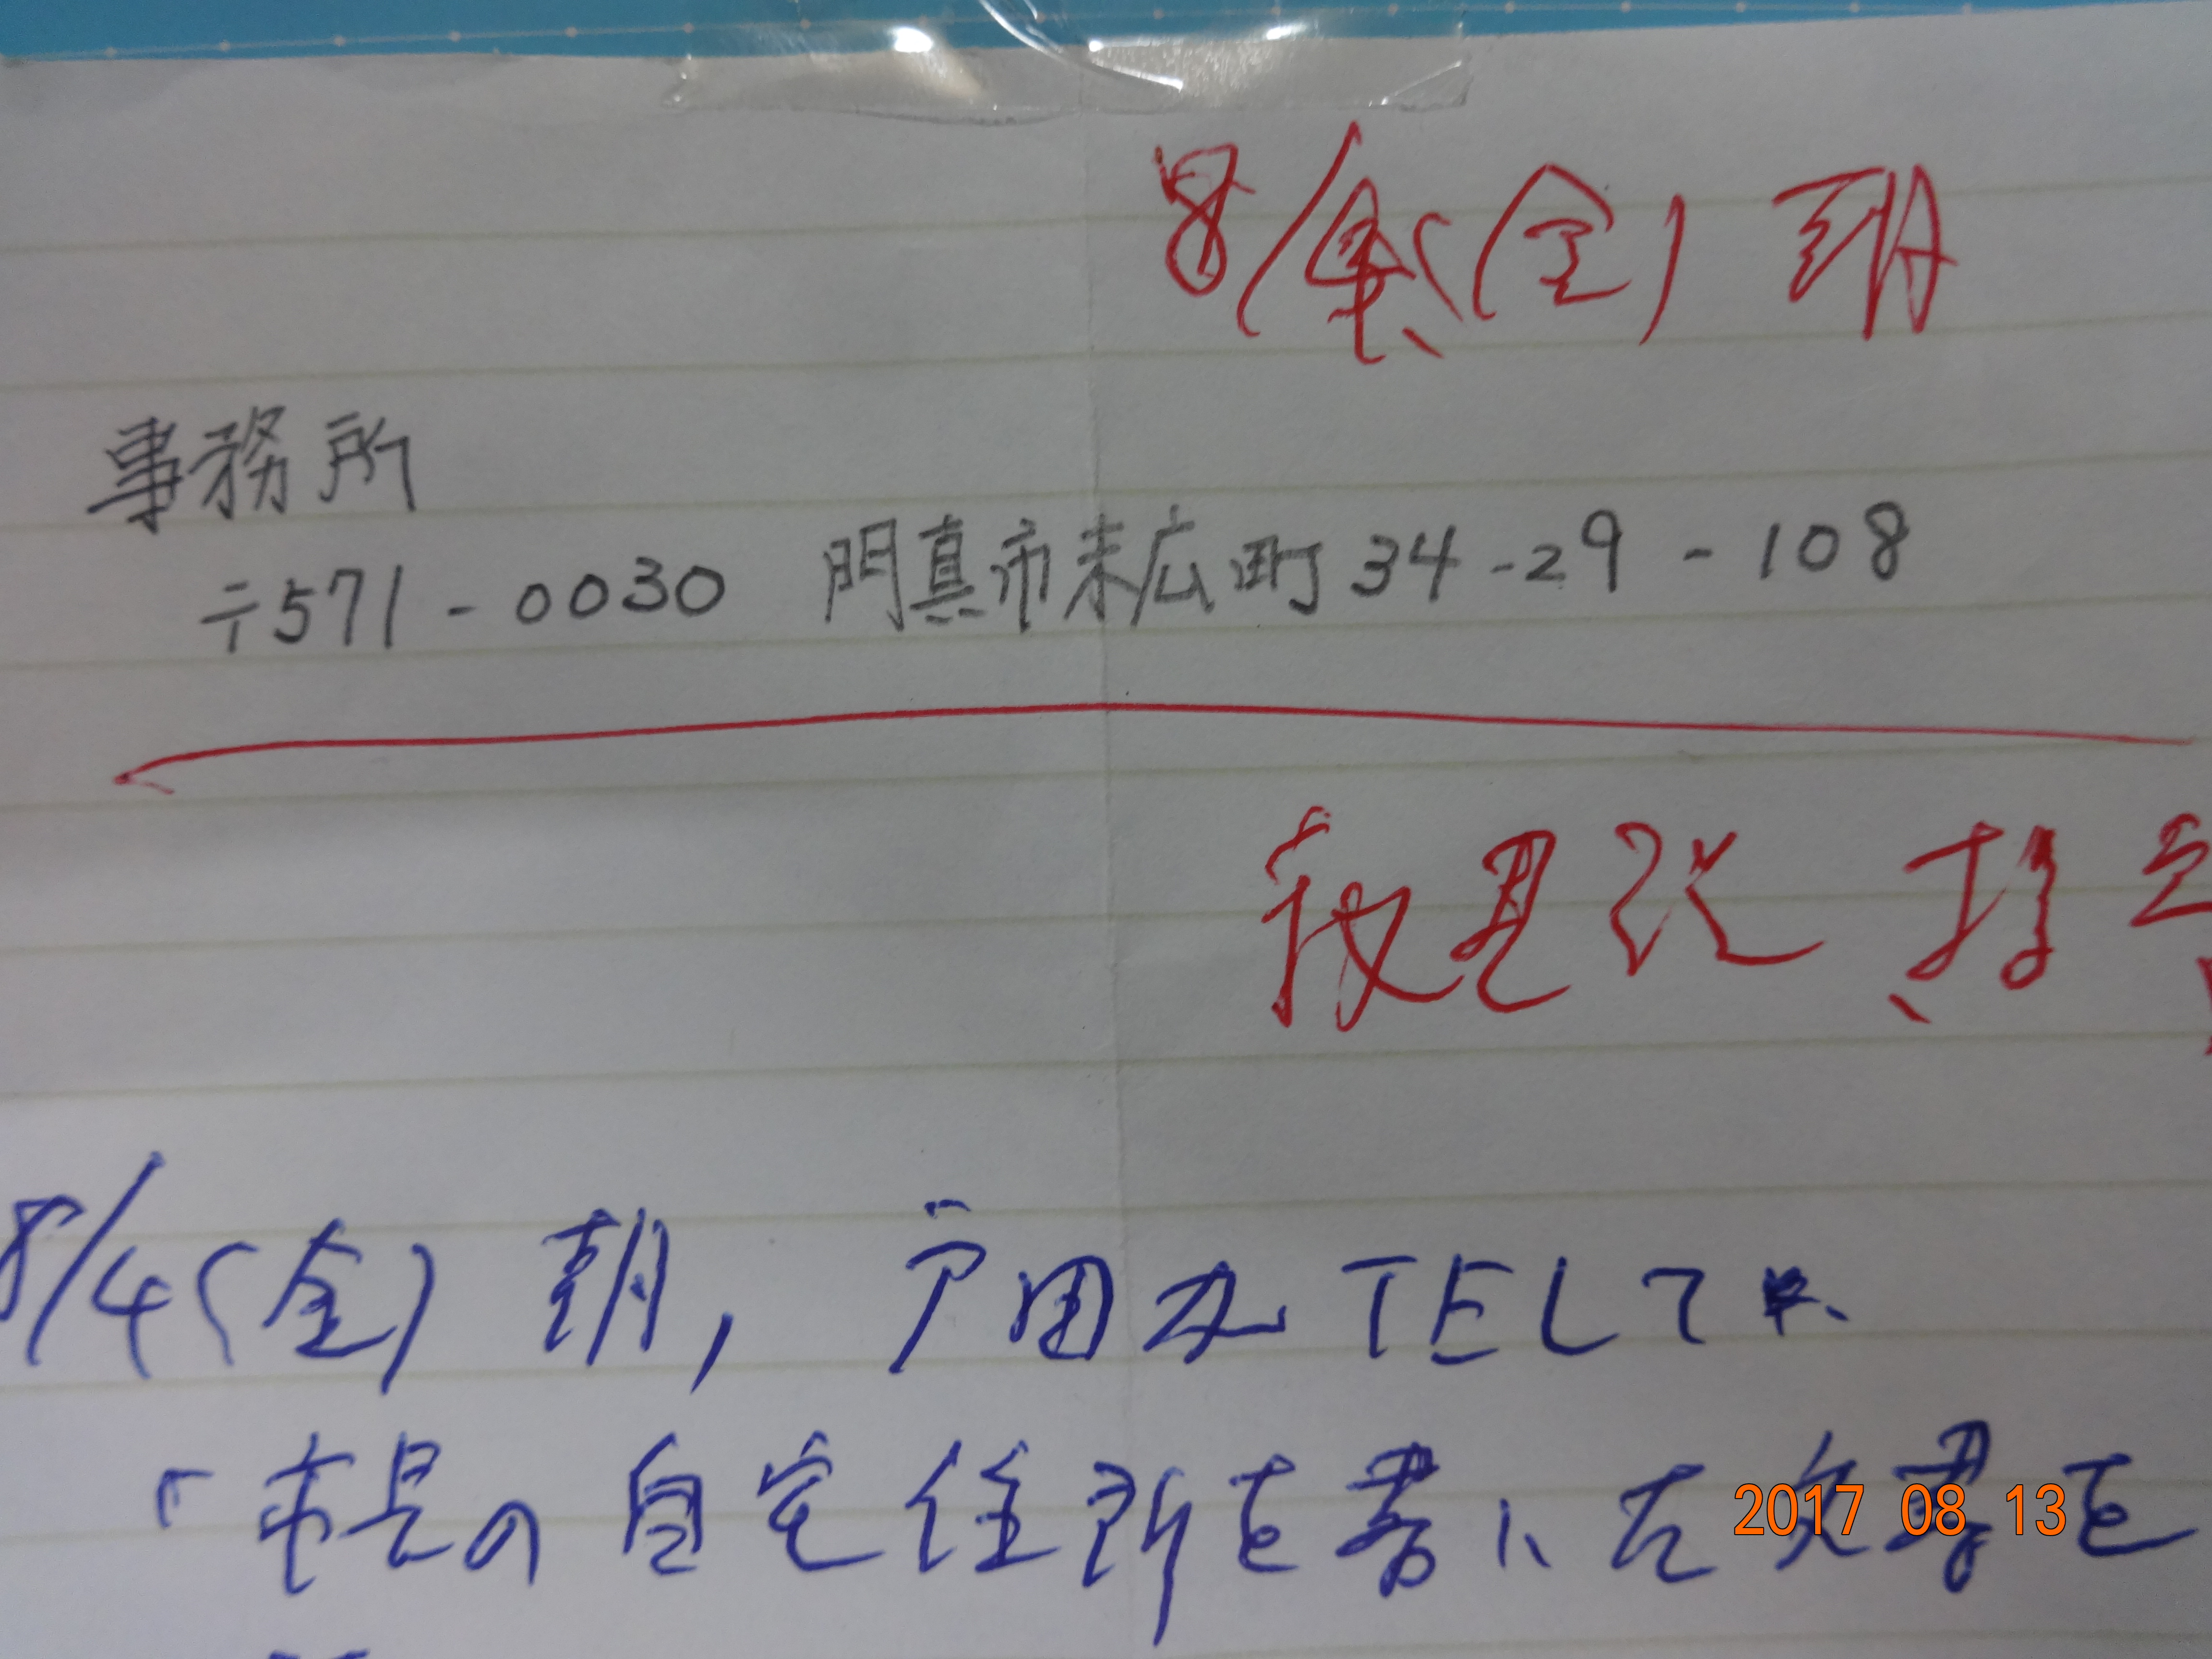 8/4(金) 朝
事務所
〒571-0030 門真市末広町34-29-108
8/4(金) 朝, 戸田がTELで
「市長の自宅住所を書いた文書を
2017 08 13